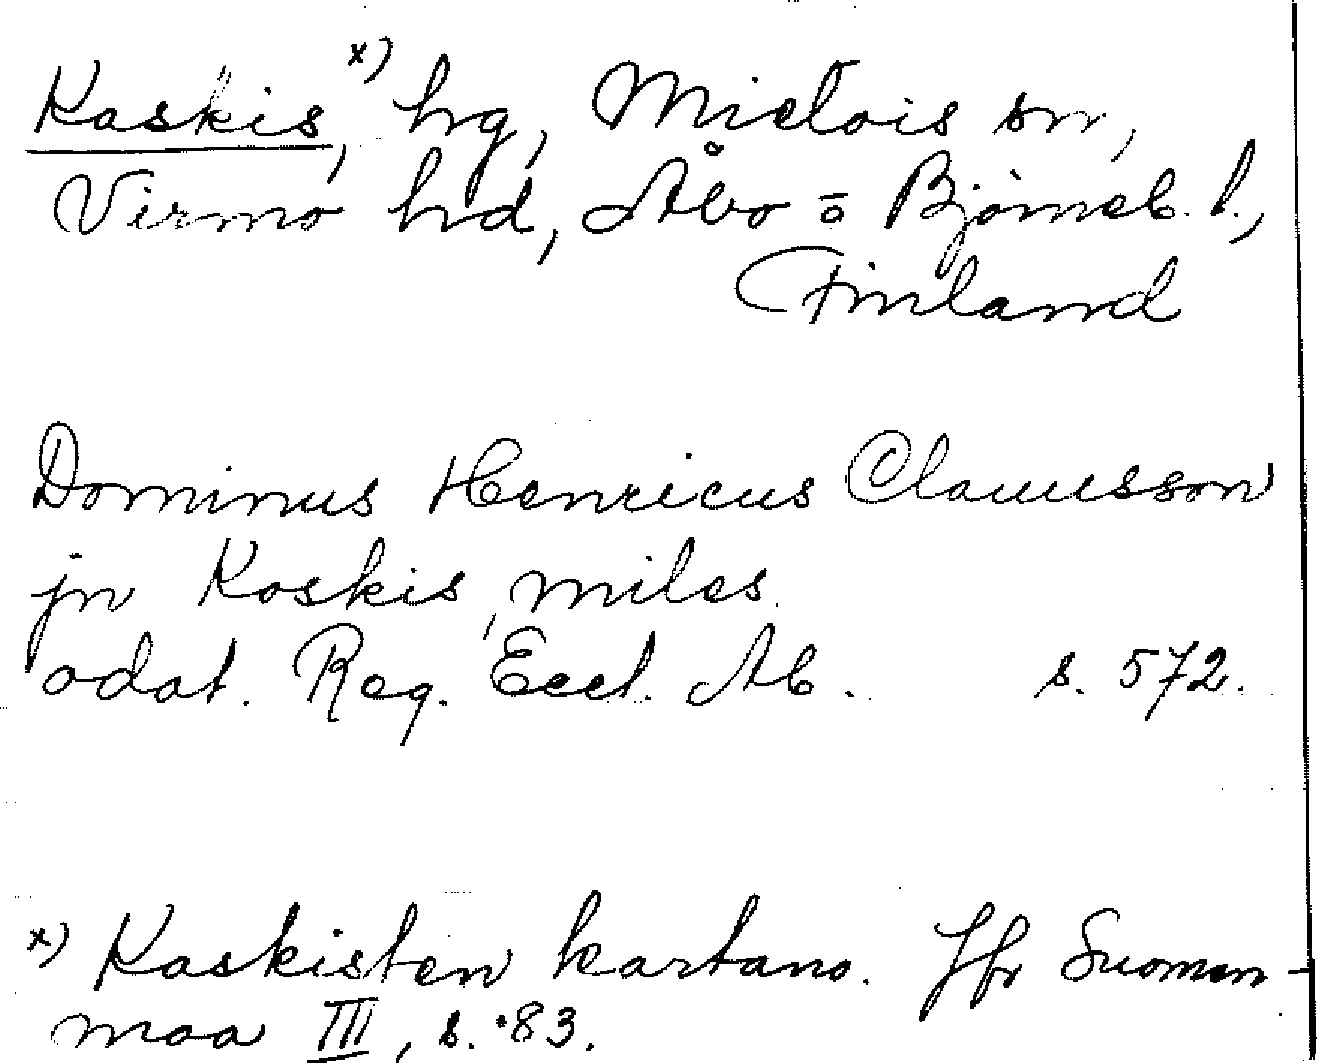 Kaskis, x) hg, Mietois sn,
Virmo hd, Åbo = Björneb. l.,
Finland
Dominus Henricus Clauusson
jn Koskis, miles.
odat. Reg. Eccl. Ab. s. 572.
x) Kaskisten kartano. Jfr Suomen-
maa III, s. 83.